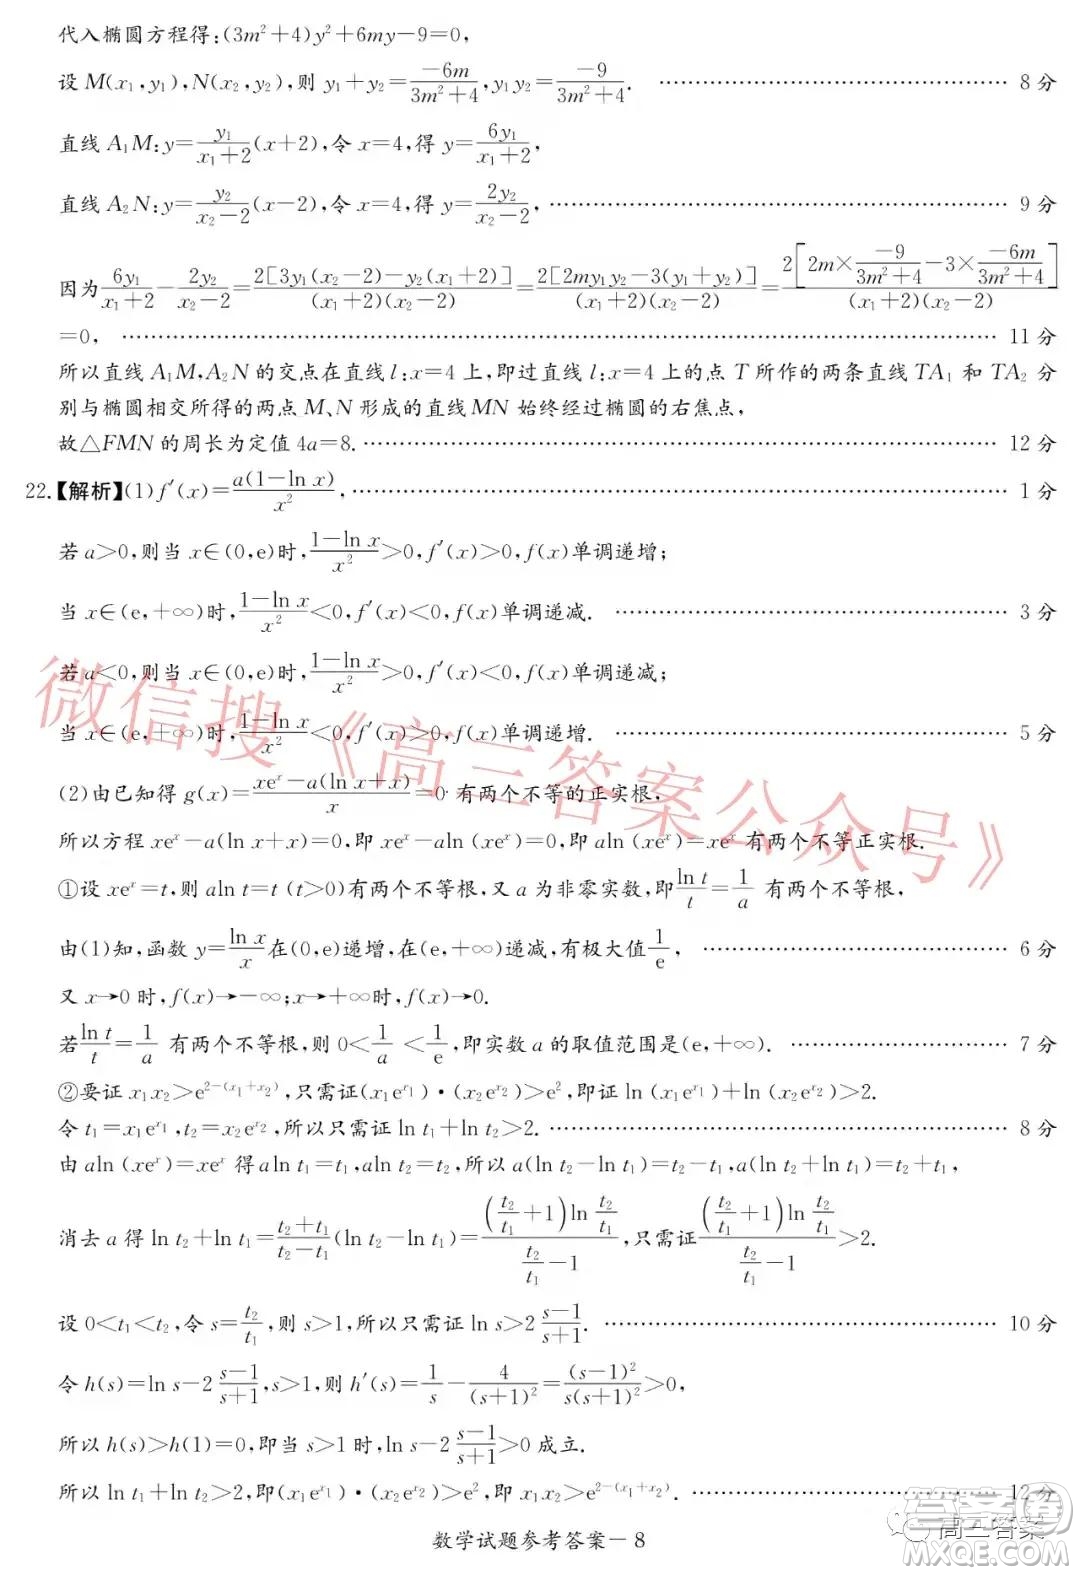 代入椭圆方程得:(3m²+4)y²+6my-9=0,
设 M(x₁,y₁),N(x₂,y₂),则 y₁+y₂=-6m/(3m²+4),y₁y₂=-9/(3m²+4). ………… 8 分
直线 A₁M:y=y₁/(x₁+2)(x+2),令 x=4,得 y=6y₁/(x₁+2),
直线 A₂N:y=y₂/(x₂-2)(x-2),令 x=4,得 y=2y₂/(x₂-2), ………… 9 分
因为 6y₁/(x₁+2)-2y₂/(x₂-2)=2[3y₁(x₂-2)-y₂(x₁+2)]/((x₁+2)(x₂-2))=2[2my₁y₂-3(y₁+y₂)]/((x₁+2)(x₂-2))=2[2m×(-9)/(3m²+4)-3×(-6m)/(3m²+4)]/((x₁+2)(x₂-2))
=0, ………… 11 分
所以直线 A₁M,A₂N 的交点在直线 l:x=4 上,即过直线 l:x=4 上的点 T 所作的两条直线 TA₁ 和 TA₂ 分
别与椭圆相交所得的两点 M、N 形成的直线 MN 始终经过椭圆的右焦点,
故△FMN 的周长为定值 4a=8. ………… 12 分
22.【解析】(1)f′(x)=a(1-ln x)/x², ………… 1 分
若 a>0,则当 x∈(0,e)时,(1-ln x)/x²>0,f′(x)>0,f(x)单调递增;
当 x∈(e,+∞)时,(1-ln x)/x²<0,f′(x)<0,f(x)单调递减. ………… 3 分
若 a<0,则当 x∈(0,e)时,(1-ln x)/x²>0,f′(x)<0,f(x)单调递减;
当 x∈(e,+∞)时,(1-ln x)/x²<0,f′(x)>0,f(x)单调递增. ………… 5 分
微信搜《高三答案公众号》
(2)由已知得 g(x)=(xeˣ-a(ln x+x))/x=0 有两个不等的正实根,
所以方程 xeˣ-a(ln x+x)=0,即 xeˣ-aln (xeˣ)=0,即 aln (xeˣ)=xeˣ 有两个不等正实根.
①设 xeˣ=t,则 aln t=t (t>0)有两个不等根,又 a 为非零实数,即 ln t/t=1/a 有两个不等根,
由(1)知,函数 y=ln x/x 在(0,e)递增,在(e,+∞)递减,有极大值 1/e, ………… 6 分
又 x→0 时,f(x)→-∞;x→+∞时,f(x)→0.
若 ln t/t=1/a 有两个不等根,则 0<1/a<1/e,即实数 a 的取值范围是(e,+∞). ………… 7 分
②要证 x₁x₂>e^(2-(x₁+x₂)),只需证(x₁e^x₁)·(x₂e^x₂)>e²,即证 ln (x₁e^x₁)+ln (x₂e^x₂)>2.
令 t₁=x₁e^x₁,t₂=x₂e^x₂,所以只需证 ln t₁+ln t₂>2. ………… 8 分
由 aln (xeˣ)=xeˣ 得 aln t₁=t₁,aln t₂=t₂,所以 a(ln t₂-ln t₁)=t₂-t₁,a(ln t₂+ln t₁)=t₂+t₁,
消去 a 得 ln t₂+ln t₁=(t₂+t₁)/(t₂-t₁)(ln t₂-ln t₁)=((t₂/t₁+1)ln t₂/t₁)/(t₂/t₁-1),只需证((t₂/t₁+1)ln t₂/t₁)/(t₂/t₁-1)>2.
设 0<t₁<t₂,令 s=t₂/t₁,则 s>1,所以只需证 ln s>2 (s-1)/(s+1). ………… 10 分
令 h(s)=ln s-2 (s-1)/(s+1),s>1,则 h′(s)=1/s-4/(s+1)²=(s-1)²/(s(s+1)²)>0,
所以 h(s)>h(1)=0,即当 s>1 时,ln s-2 (s-1)/(s+1)>0 成立.
所以 ln t₁+ln t₂>2,即(x₁e^x₁)·(x₂e^x₂)>e²,即 x₁x₂>e^(2-(x₁+x₂)). ………… 12 分
数学试题参考答案－8
高三答案
答案圈
MXQE.COM